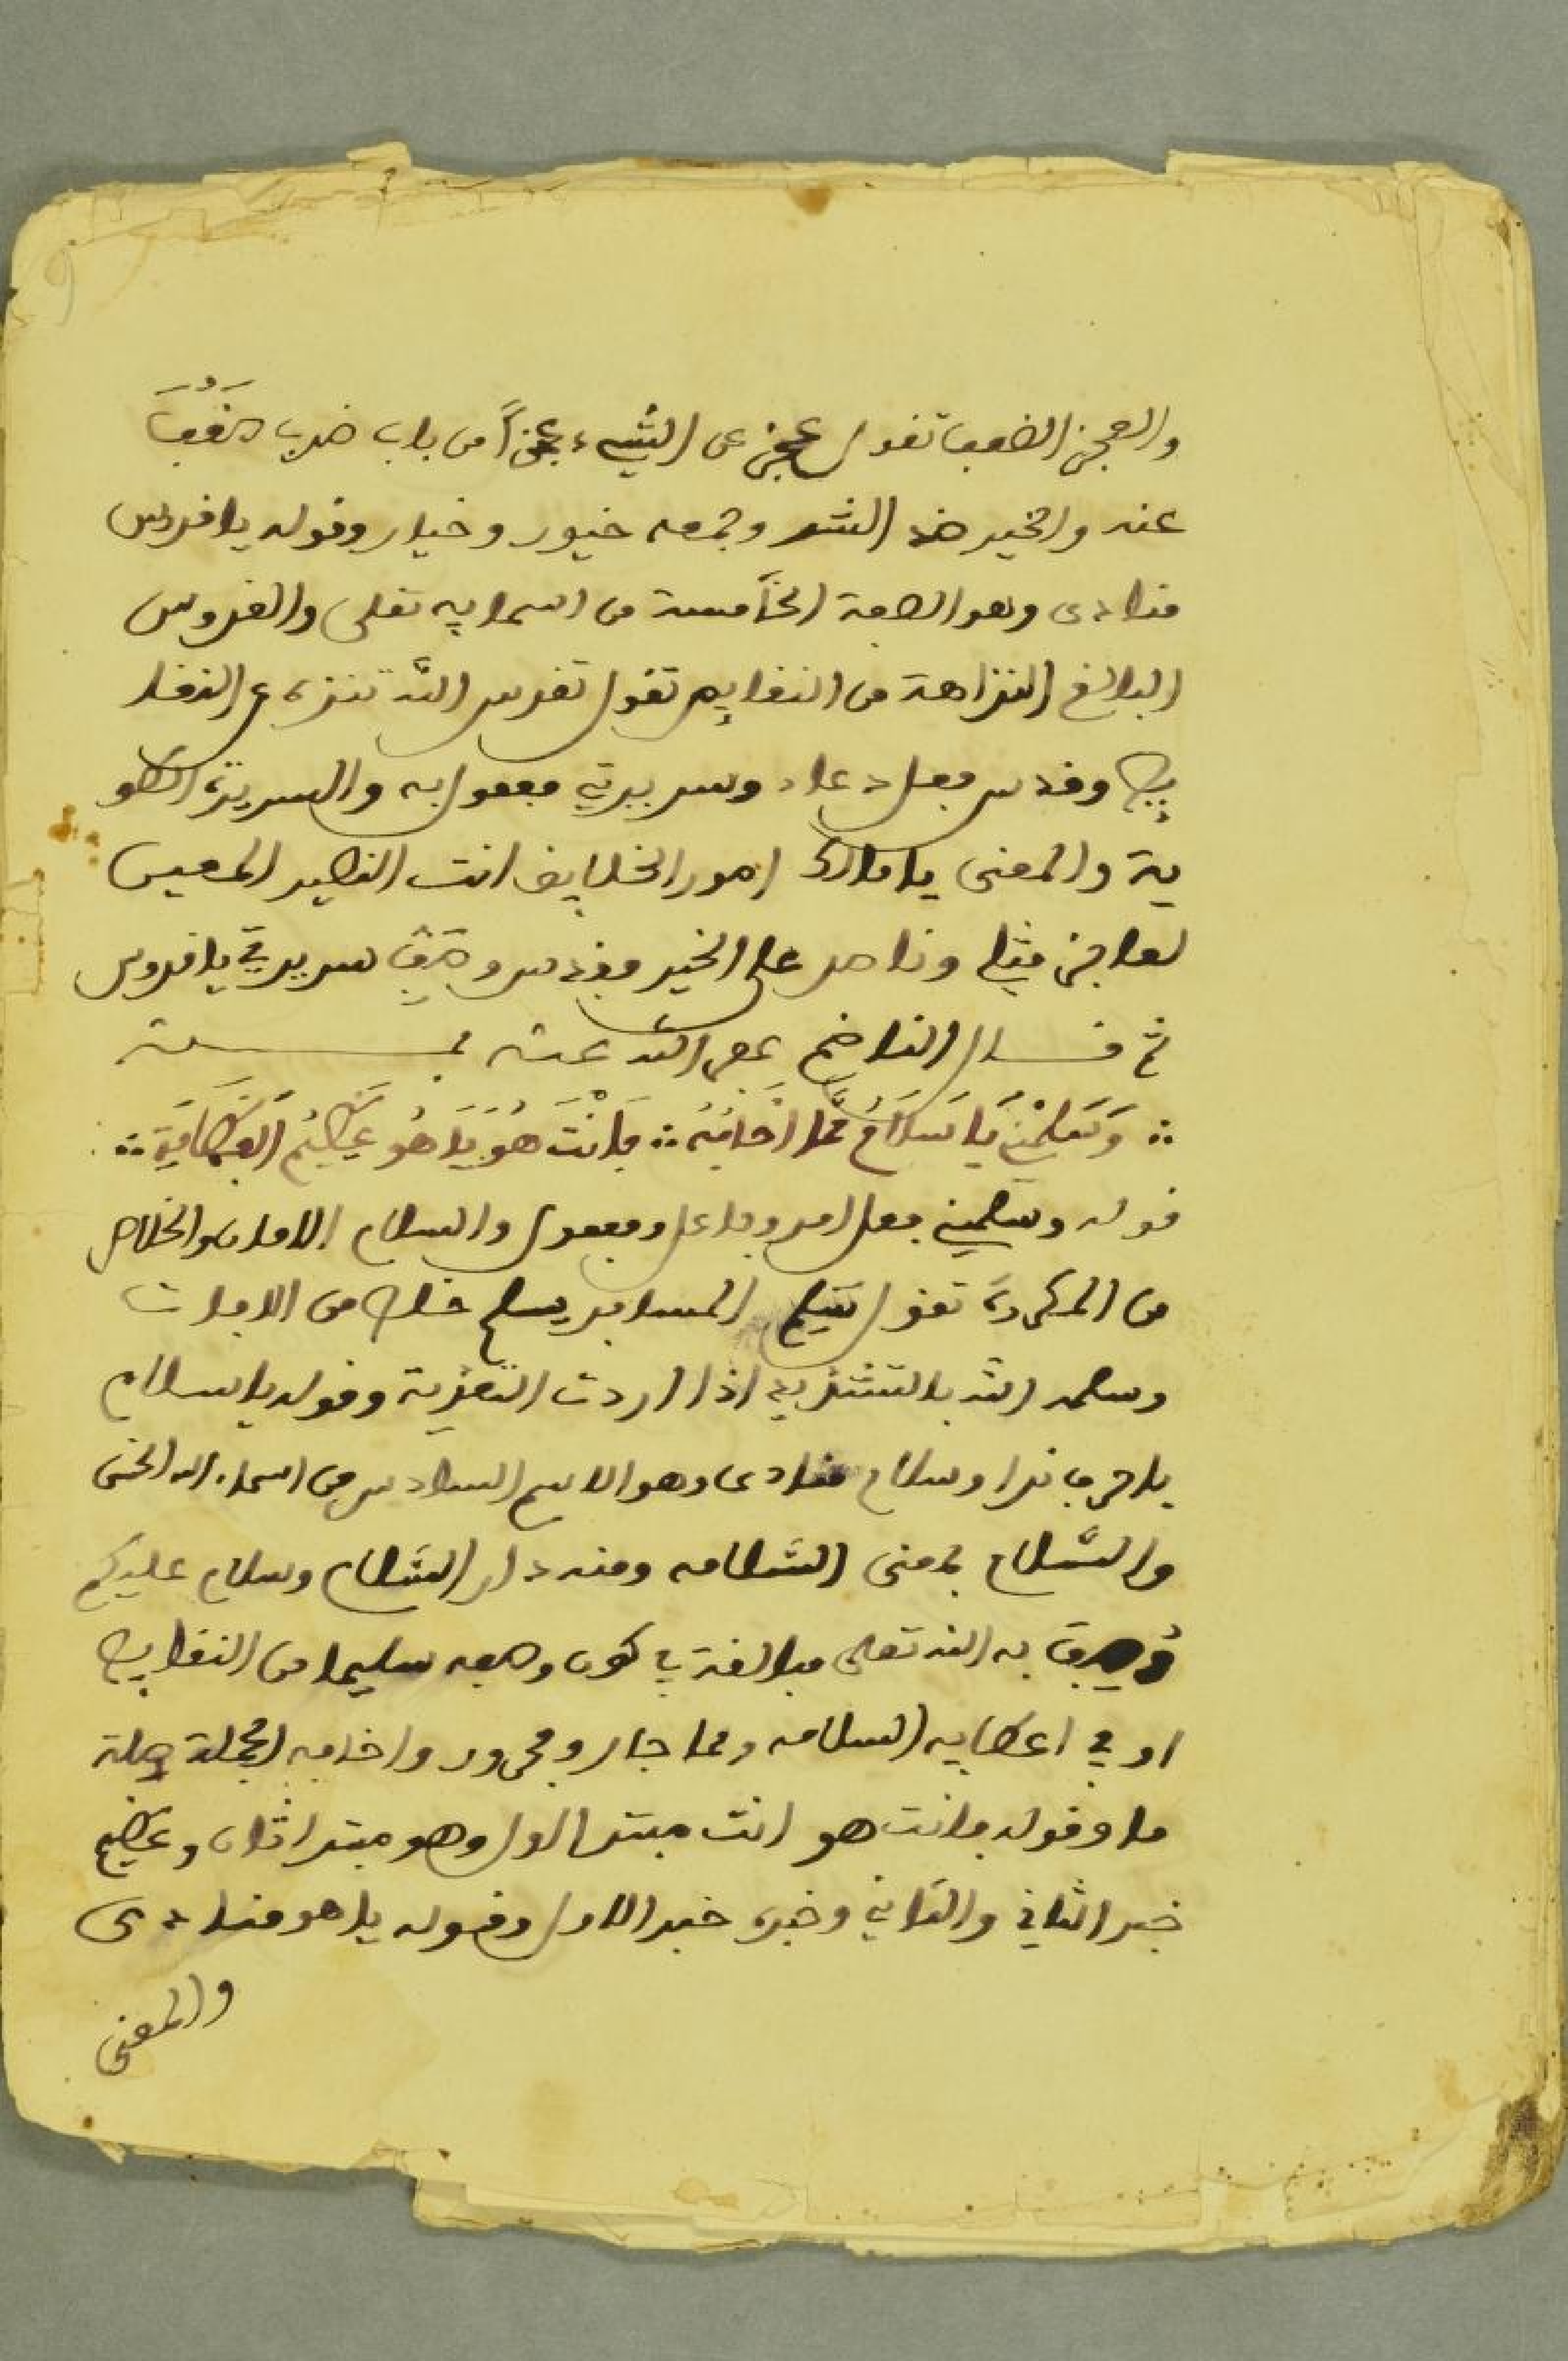 والعجز الضعف تقول عجز عن الشيء عجزاً من باب ضرب ضَعُفَ
عنه والخير ضد الشر وجمعه خيور وخيار وقوله يا قدوس
منادى وهو الصفة الخامسة من اسمايه تعلى والقدوس
البالغ النزاهة من النقايص تقول تقدس الله تنزه عن النقا
يص وقدس فعل دعاء وسريرتي مفعول به والسريرة الطو
ية والمعنى يا مالك امور الخلايق انت النصير المعين
لعاجز مثلي وناصر على الخير فقدس وصف سريرتي يا قدوس
ثم قال الناظم عفى الله عنه بمنه
وَسَلِّمْنِي يَا سَلَامُ مِمَّا أَخَافُهُ فَأَنْتَ هُوَ يَا هُو عَظِيمُ الْعَطَايَةِ
قوله وسلمني فعل امر وفاعل ومفعول والسلام الامان والخلاص
من المكروه تقول سلم المسافر يسلم خلص من الافات
وسلمه الله بالتشديد اذا اردت التعدية وقوله يا سلام
يا حرف ندا وسلام منادى وهو الاسم السادس من اسماء الله الحسنى
والسَّلام بمعنى السلامه ومنه دار السلام وسلام عليكم
وُصِف به الله تعلى مبالغة في كون وصفه سليما من النقايص
او في اعطايه السلامه ومما جار ومجرور واخافه الجملة صلة
ما وقوله فانت هو انت مبتدا اول وهو مبتدا ثان وعظيم
خبر الثاني والثاني وخبره خبر الاول وقوله يا هو منادى
والمعنى